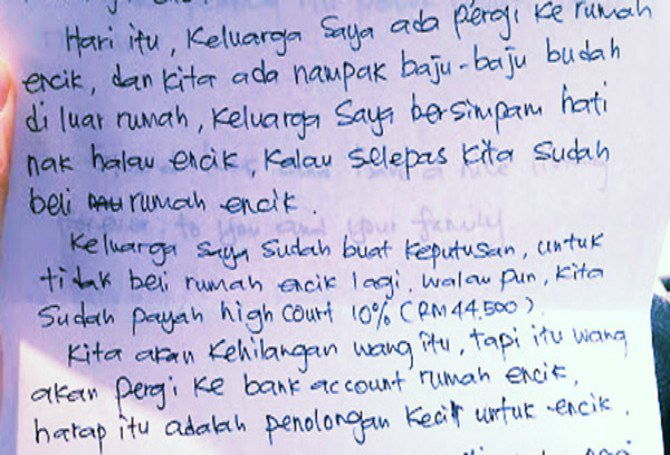 Hari itu, keluarga saya ada pergi ke rumah
encik, dan kita ada nampak baju-baju budah
di luar rumah, keluarga saya bersimpam hati
nak halau encik, kalau selepas kita sudah
beli rumah encik.
to you and your family
keluarga saya sudah buat keputusan, untuk
tidak beli rumah encik lagi, walau pun, kita
sudah payah high court 10% (RM 44,500)
kita akan kehilangan wang itu, tapi itu wang
akan pergi ke bank account rumah encik,
harap itu adalah penolongan kecik untuk encik.